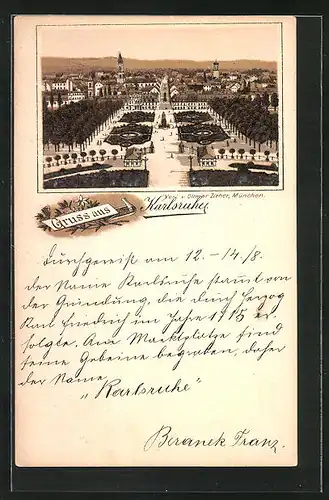 Verl. v. Ottmar Zieher, München.
Gruss aus
Karlsruhe
Durchgereist am 12.-14./8.
der Name Karlsruhe stammt von
der Gründung, die durch Herzog
Karl Friedrich im Jahre 1715 er-
folgte. Am Marktplatze sind
seine Gebeine begraben, daher
der Name
"Karlsruhe"
Beranek Franz.